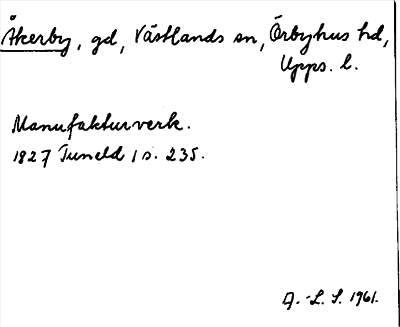 Åkerby, gd, Västlands sn, Örbyhus hd,
Upps. l.
Manufakturverk.
1827 Tuneld 1 s. 235.
A.-L. S. 1961.